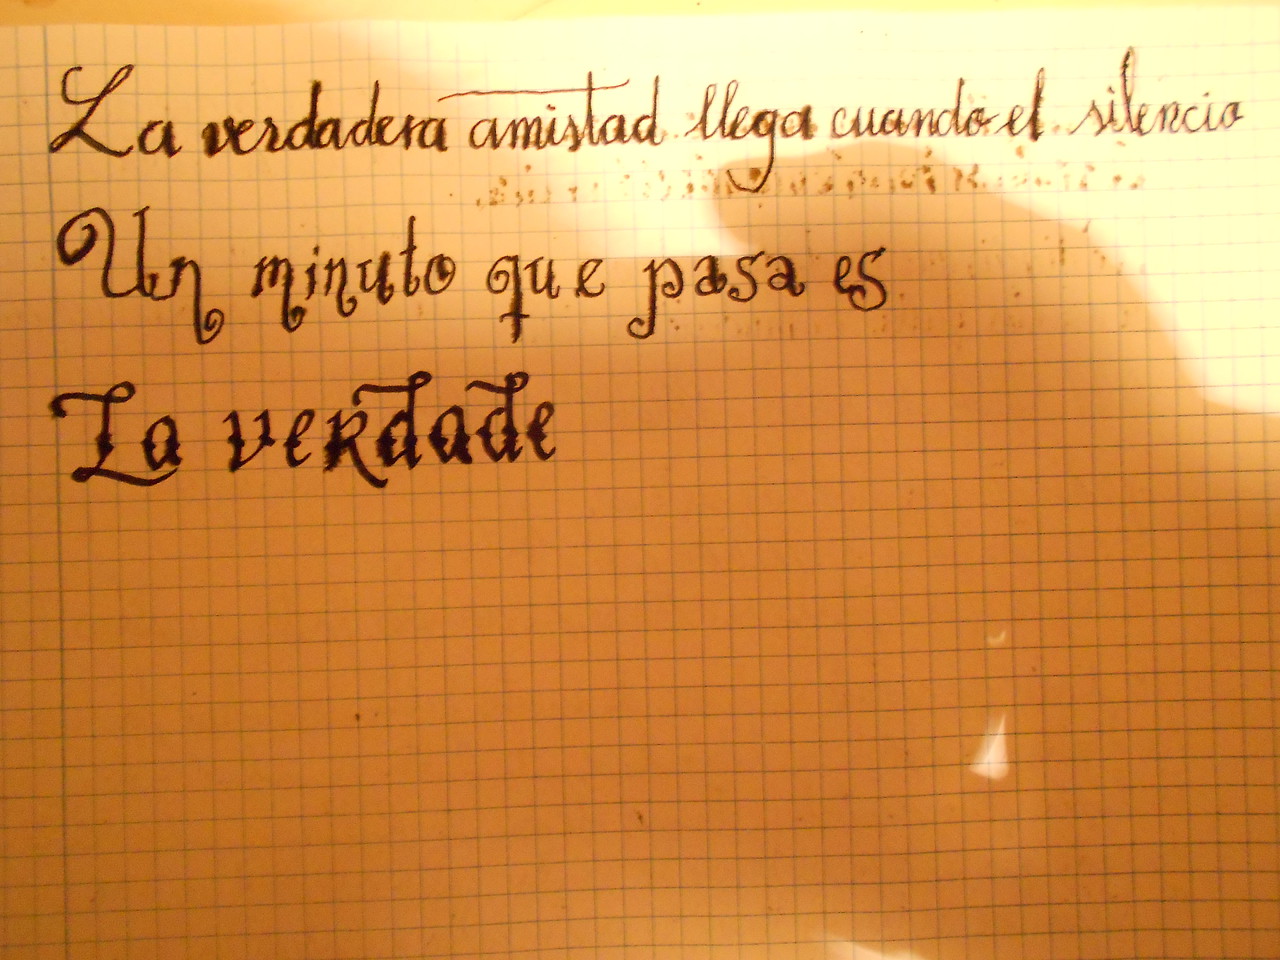 La verdadera amistad llega cuando el silencio
Un minuto que pasa es
La verdade